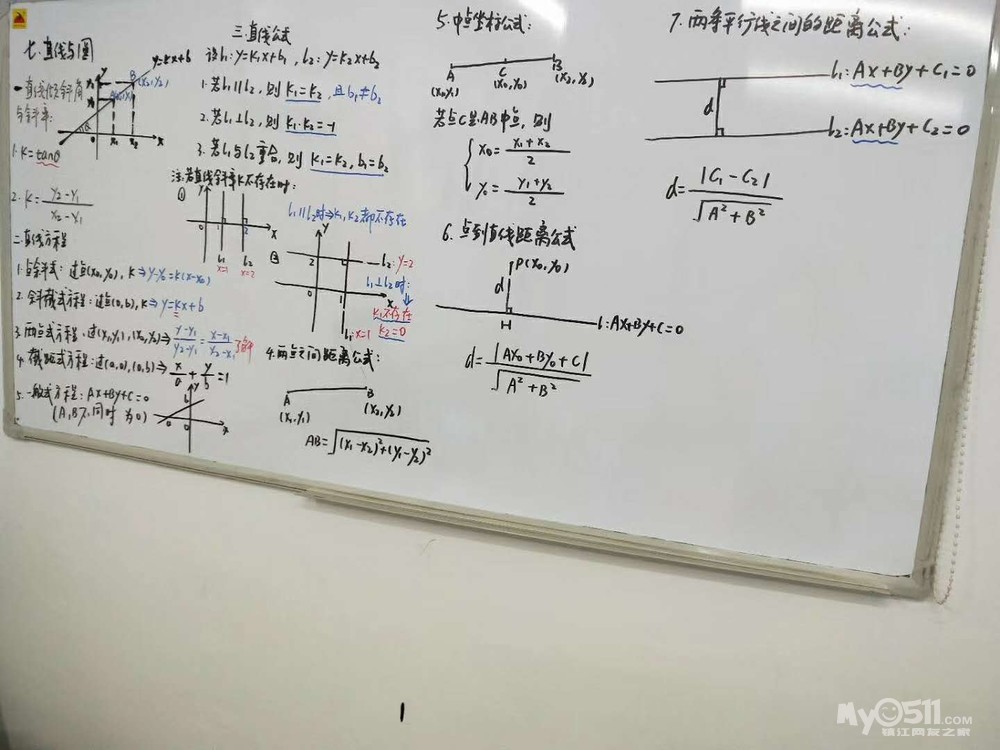 七.直线与圆
y=kx+b
y
B(x₂,y₂)
y₂
y₁
A(x₁,y₁)
θ
0
x₁
x₂
x
一.直线倾斜角
与斜率:
1.K=tanθ
2.K=(y₂-y₁)/(x₂-x₁)
二.直线方程
1.点斜式:过点(x₀,y₀),K⇒y-y₀=K(x-x₀)
2.斜截式方程:过点(0,b),K⇒y=Kx+b
3.两点式方程:过(x₁,y₁),(x₂,y₂)⇒(y-y₁)/(y₂-y₁)=(x-x₁)/(x₂-x₁)
4.截距式方程:过(a,0),(0,b)⇒x/a+y/b=1
5.一般式方程:Ax+By+C=0
(A,B不同时为0)
y
b
a
0
x
三.直线公式
设l₁:y=K₁x+b₁,l₂:y=K₂x+b₂
1.若l₁∥l₂,则K₁=K₂,且b₁≠b₂
2.若l₁⊥l₂,则K₁·K₂=-1
3.若l₁与l₂重合,则K₁=K₂,b₁=b₂
注:若直线斜率K不存在时:
①
y
0
1
2
x
l₁
x=1
l₂
x=2
l₁∥l₂时⇒K₁,K₂都不存在
②
y
2
l₂:y=2
0
1
x
l₁:x=1
l₁⊥l₂时:
K₁不存在
K₂=0
4.两点之间距离公式:
A
(x₁,y₁)
B
(x₂,y₂)
AB=√((x₁-x₂)²+(y₁-y₂)²)
5.中点坐标公式:
A
(x₁,y₁)
C
(x₀,y₀)
B
(x₂,y₂)
若点C是AB中点,则
x₀=(x₁+x₂)/2
y₀=(y₁+y₂)/2
6.点到直线距离公式
P(x₀,y₀)
d
H
l:Ax+By+C=0
d=|Ax₀+By₀+C|/√(A²+B²)
7.两条平行线之间的距离公式:
l₁:Ax+By+C₁=0
d
l₂:Ax+By+C₂=0
d=|C₁-C₂|/√(A²+B²)
My0511.COM
镇江网友之家